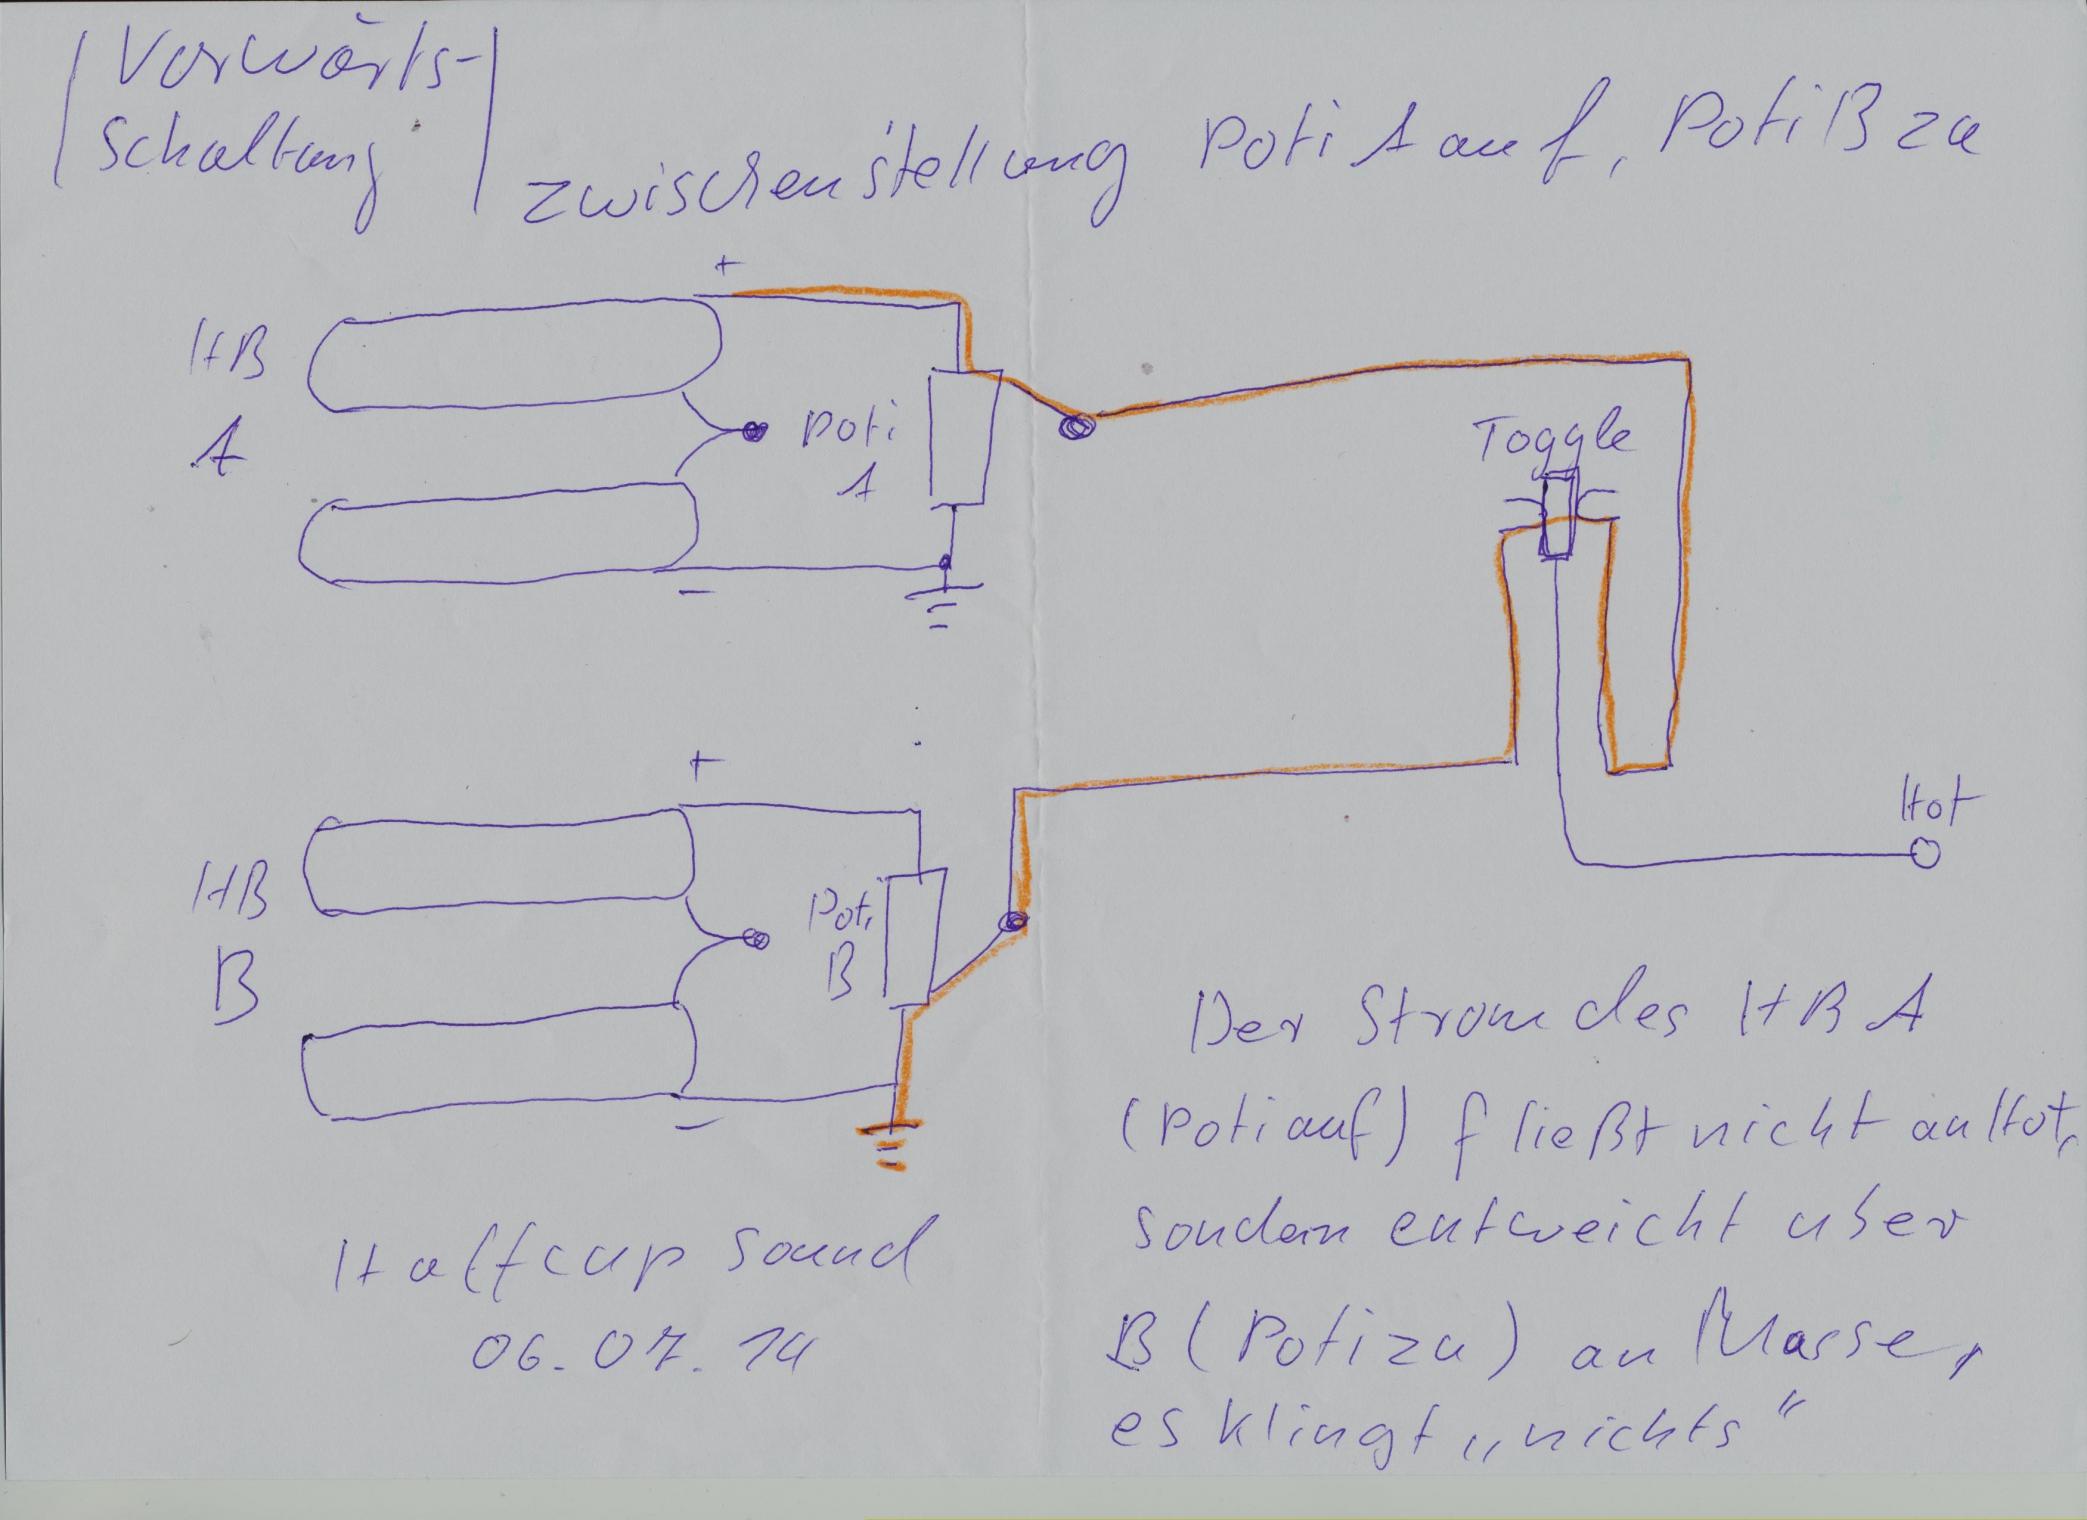 Vorwärts-
Schaltung
Zwischenstellung Poti A auf, Poti B zu
+
HB
A
Poti
A
-
Toggle
+
HB
B
Poti
B
-
Hot
Der Strom des HB A
(Poti auf) fließt nicht an Hot,
sondern entweicht über
B (Poti zu) an Masse,
es klingt „nichts“
Halfcup Sound
06.07.14